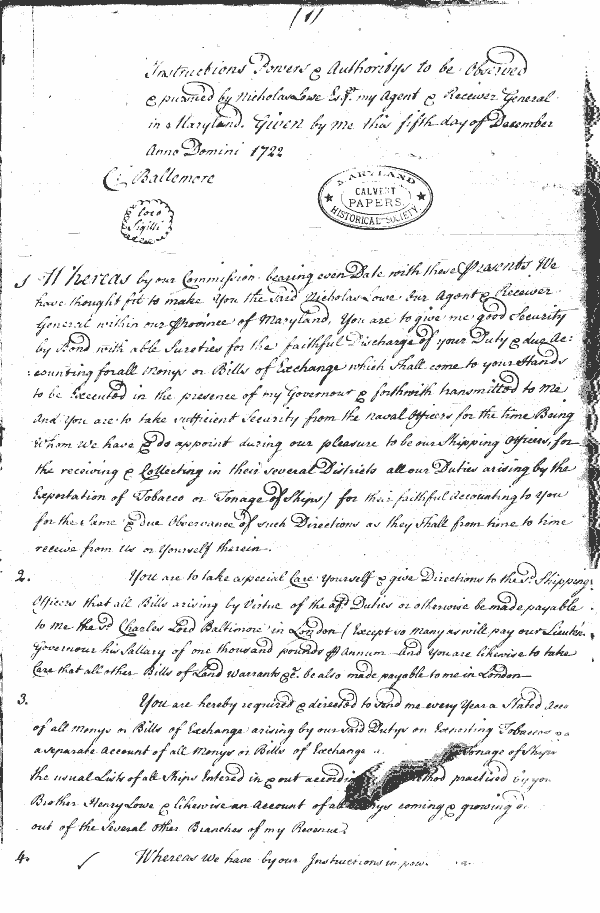 (1)
Instructions Powers & Authoritys to be Observed
& pursued by Nicholas Lowe Esqr. my Agent & Receiver General
in Maryland. Given by me this fifth day of December
Anno Domini 1722
C: Baltemore
MARYLAND
CALVERT
PAPERS.
HISTORICAL SOCIETY
Loco
Sigilli
1 Whereas by our Commission bearing even Date with these Presents We
have thought fit to make You the Said Nicholas Lowe Our Agent & Receiver
General within our Province of Maryland, You are to give me good Security
by Bond with able Sureties for the faithful Discharge of your Duty & due Ac=
:counting for all Monys or Bills of Exchange which Shall come to your Hands
to be Executed in the presence of my Governour & forthwith transmitted to me
And you are to take sufficient Security from the naval officers for the time Being
Whom we have & do appoint during our pleasure to be our Shipping Officers, for
the receiving & Collecting in their Several Districts all our Duties arising by the
Exportation of Tobacco or Tonage of Ships / for their faithful Accounting to You
for the Same & due Observance of such Directions as they Shall from time to time
receive from Us or Yourself therein.
2. You are to take a special Care Yourself & give Directions to the sd. Shipping
Officers that all Bills arising by Virtue of the afd. Duties or otherwise be made payable
to me the sd. Charles Lord Baltimore in London (Except so many as will pay our Lieuten.
Governour his Sallary of one thousand pounds p Annum and You are likewise to take
Care that all other Bills of Land warrants &c. be also made payable to me in London
3. You are hereby required & directed to send me every Year a Stated Acco
of all Monys or Bills of Exchange arising by our Said Dutys on Exporting Tobacco
a separate Account of all Monys or Bills of Exchange Tonage of Ships
the usual Lists of all Ships Entered in & out accordin method practised by you
Brother Henry Lowe & likewise an Account of all coming & growing
out of the Several other Branches of my Revenue.
4. Whereas We have by our Instructions